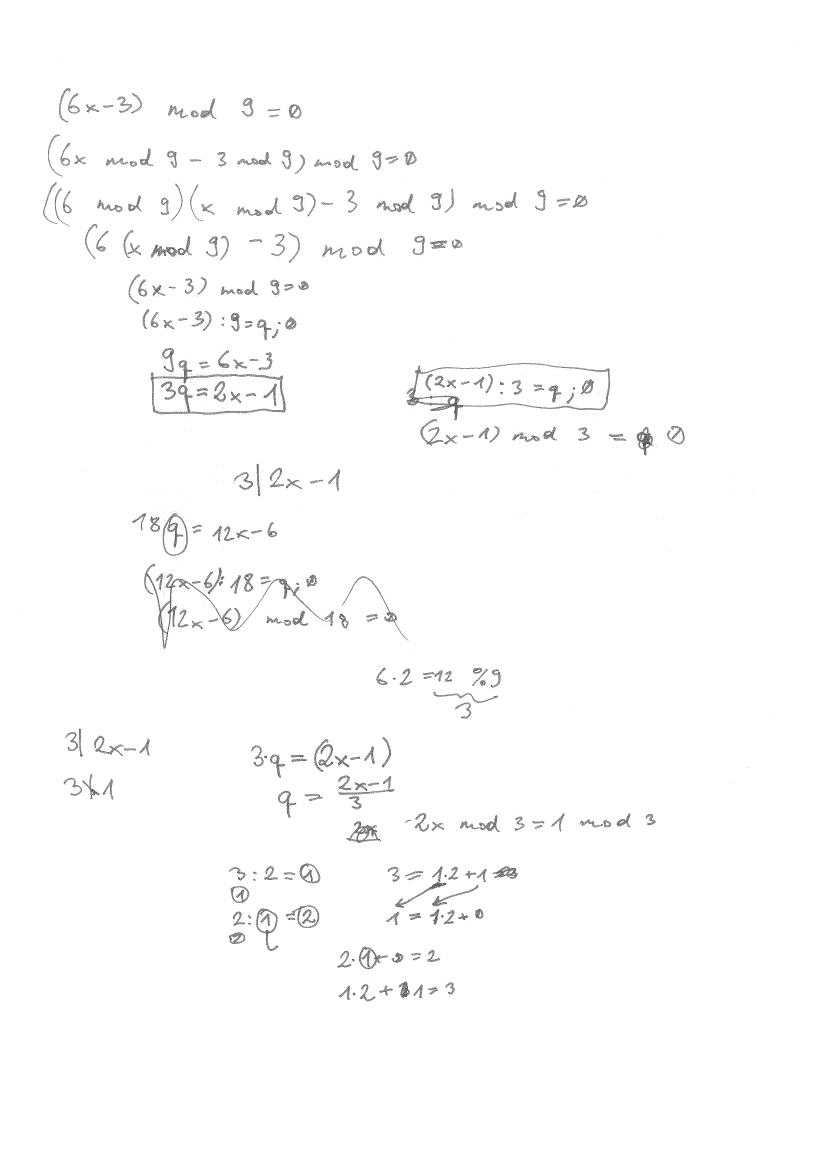 (6x-3) mod 9 = 0
(6x mod 9 - 3 mod 9) mod 9=0
((6 mod 9)(x mod 9) - 3 mod 9) mod 9=0
(6 (x mod 9) - 3) mod 9=0
(6x-3) mod 9=0
(6x-3) : 9 = q ; 0
9q = 6x-3
3q = 2x-1
(2x-1) : 3 = q ; 0
(2x-1) mod 3 = 0
3 | 2x-1
18q = 12x-6
(12x-6) : 18 = q ; 0
(12x-6) mod 18 = 0
6·2 = 12 %9
3
3 | 2x-1
3 ∤ 1
3·q = (2x-1)
q = 2x-1 / 3
-2x mod 3 = 1 mod 3
3 : 2 = 1
1
2 : 1 = 2
0
3 = 1·2+1
1 = 1·2+0
2·1+0 = 2
1·2+1 = 3